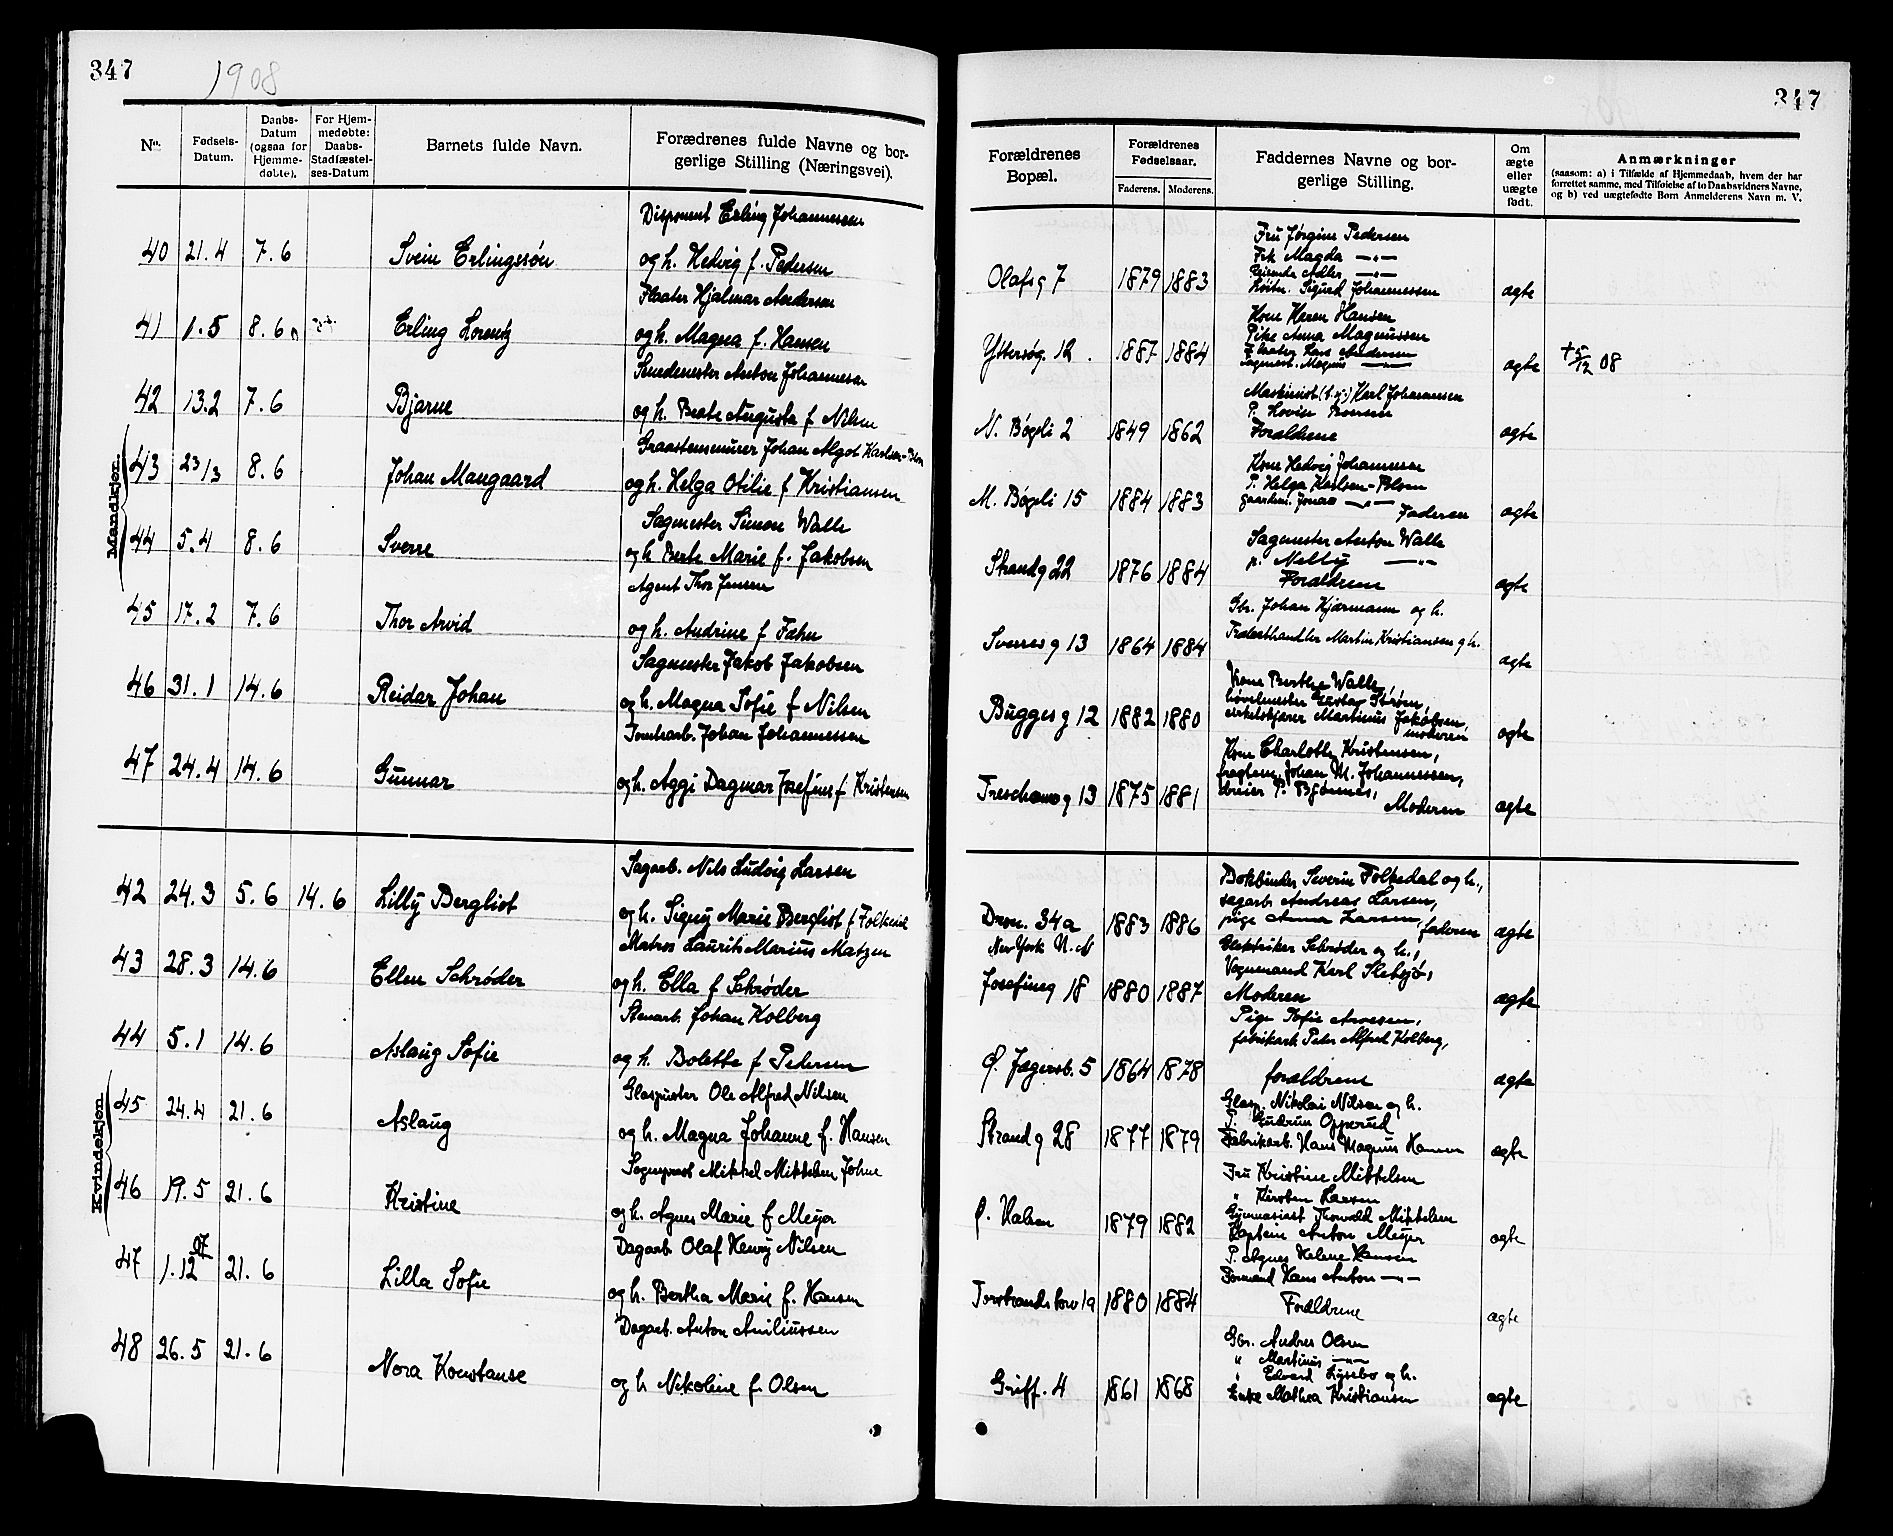 347
1908
No.
Fødsels-
Datum.
Daabs-
Datum
(ogsaa for
Hjemme-
døbte).
For Hjem-
medøbte:
Daabs-
Stadfæstel-
ses-Datum
Barnets fulde Navn.
Forædrenes fulde Navne og bor-
gerlige Stilling (Næringsvei).
Mandkjøn.
Disponent Erling Johannessen
40 21.4 7.6 Svein Erlingssøn og h. Hedvig f. Pedersen
Flaater Hjalmar Andersen
41 1.5 8.6 Erling Lorentz og h. Magna f. Hansen
Smedemester Anton Johannessen
42 13.2 7.6 Bjarne og h. Beate Augusta f Nilsen
Graastensmurer Johan Algot Karlsen-
43 23/3 8.6 Johan Mangaard og h. Helga Otilie f Kristiansen
Sagmester Simon Walle
44 5.4 8.6 Sverre og h. Berte Marie f. Jakobsen
Agent Thor Jensen
45 17.2 7.6 Thor Arvid og h. Andrine f Fahn
Sagmester Jakob Jakobsen
46 31.1 14.6 Reidar Johan og h. Magna Sofie f Nilsen
Tomtearb. Johan Johannessen
47 24.4 14.6 Gunnar og h. Aggi Dagmar Josefine f Kristensen
Kvindekjøn.
Sagarb. Nils Ludvig Larsen
42 24.3 5.6 14.6 Lilly Bergliot og h. Signy Marie Bergliot f
Matros Laurits Marius Matzen
43 28.3 14.6 Ellen Schrøder og h. Ella f Schrøder
Stenarb. Johan Kolberg
44 5.1 14.6 Aslaug Sofie og h. Bolette f Pedersen
Glaspuster Ole Alfred Nilsen
45 24.4 21.6 Aslaug og h. Magna Johanne f. Hansen
Mikkel Mikkelsen
46 19.5 21.6 Kristine og h. Agnes Marie f Meyer
Dagarb. Olaf Henry Nilsen
47 1.12 07 21.6 Lilla Sofie og h. Bertha Marie f. Hansen
Dagarb. Anton Amiliussen
48 26.5 21.6 Nora Konstanse og h Nikoline f. Olsen
347
Forældrenes
Bopæl.
Forældrenes
Fødselsaar.
Faderens. Moderens.
Faddernes Navne og bor-
gerlige Stilling.
Om
ægte
eller
uægte
født.
Anmærkninger
(saasom: a) i Tilfælde af Hjemmedaab, hvem der har
forrettet samme, med Tilføielse af to Daabsvidners Navne,
og b) ved uægtefødte Børn Anmelderens Navn m. V.
Fru Jørgine Pedersen
Frk Magda —"—
Reisende Adler —"—
Olafsg 7 1879 1883 Sigurd Johannessen ægte
Kone Karen Hansen
Pike Anna Magnussen
Flaater Lars Andersen
Yttersøg. 12. 1887 1884 Magnus —"— ægte † 5/12 08
Maskinist Karl Johannsen
P. Lovise
N. Bøgeli 2 1849 1862 Forældrene ægte
Kone Hedvig Johannessen
P. Helga Karlsen-
M. Bøgeli 15 1884 1883 Jonas —"— Faderen ægte
Sagmester Anton Walle
p. Nelly —"—
Strandg 22 1876 1884 Forældrene ægte
Gbr. Johan Hjærmann og h.
Sverresg 13 1864 1884 Trælasthandler Martin Kristiansen og h. ægte
Kone Berthe Walle,
høvelmester Gustav Strøm,
Martinus Jakobsen,
Buggesg 12 1882 1880 moderen ægte
Kone Charlotte Kristensen,
Johan M. Johannessen,
P. Bjønnes,
Treschowsg 13 1875 1881 Moderen ægte
Bokbinder Severin Folkedal og h.,
sagarb Andreas Larsen,
Dron. 34a 1883 1886 pige Anna Larsen, faderen ægte
New York N. A
Elektriker Schrøder og h.,
Vognmand Karl Slebsjø,
Josefinesg 18 1880 1887 Moderen ægte
Pige Sofie
fabrikarb Peder Alfred Kolberg,
Ø. Jegersb. 5 1864 1878 forældrene ægte
Glasp. Nikolai Nilsen og h.
P. Gudrun Opperud
Strandg 28 1877 1879 Fabrikarb. Hans Magnus Hansen ægte
Fru Kristine Mikkelsen
" Kirsten Larsen
Gymnasiast Thorvald Mikkelsen
Ø. Halsen 1879 1882 Kaptein Anton Meyer ægte
P. Agnes Helene Hansen
Formand Hans Anton —"—
Torstrandsbrw 19 1880 1884 Forældrene ægte
Gbr. Andreas Olsen
" Martinus —"—
" Edvard og h.
Griff. 4 1861 1868 Enke Mathea Kristiansen ægte